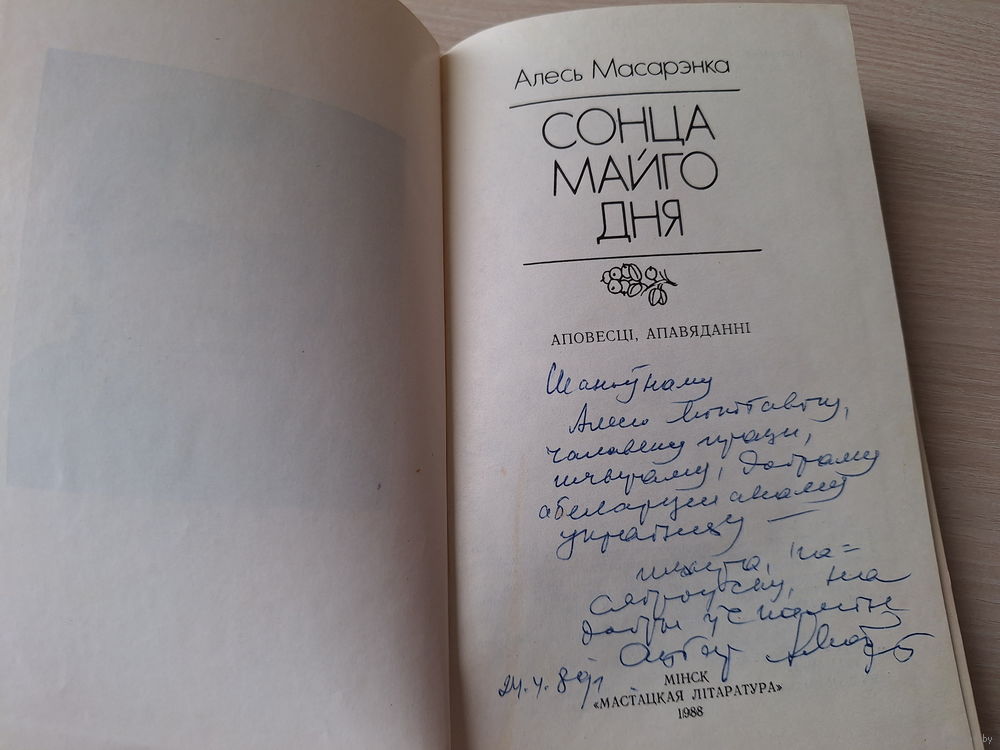 Алесь Масарэнка
СОНЦА
МАЙГО
ДНЯ
АПОВЕСЦІ, АПАВЯДАННІ
Шаноўнаму
Алесю
чалавеку працы,
шчыраму, добраму
абеларушанаму
украінцу —
шчыра, па=
сяброўску, на
добры ўспамін
Аўтар
24.4.89 г.
МІНСК
«МАСТАЦКАЯ ЛІТАРАТУРА»
1988
by